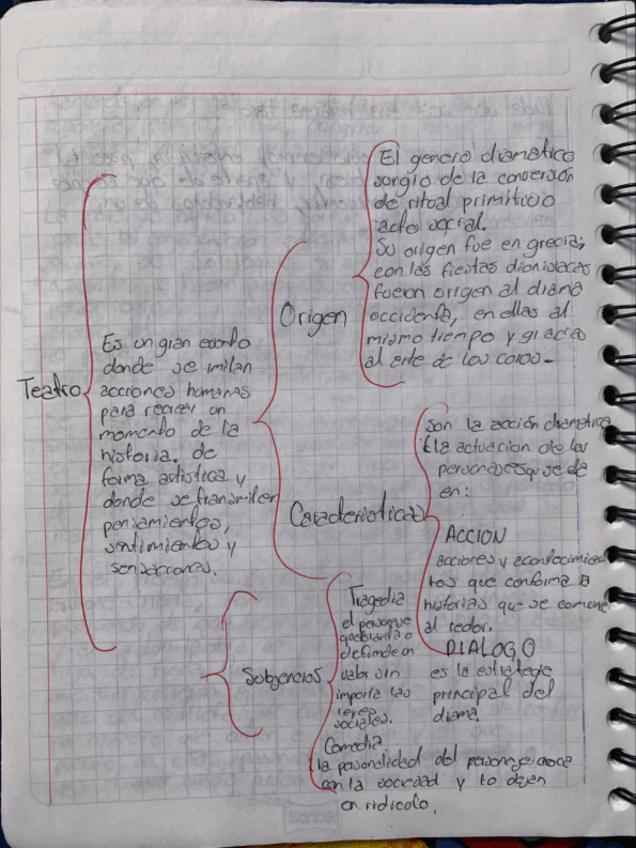 Teatro
Es un gran evento
donde se imitan
acciones humanas
para recrear un
momento de la
historia. de
forma artistica y
donde se transmiten
pensamientos,
sentimientos y
sensaciones.
Origen
El genero dramatico
surgio de la conversón
de ritual primitivo
acto social.
Su origen fue en grecia;
con las fiestas dionisiacas
fueron origen al drama
occidente, en ellas al
mismo tiempo y gracias
al arte de los coros-
Caracteristicas
son la acción dramatica
la actuacion de los
personajes que se da
en:
ACCION
acciones y acontecimien
tos que conforma la
historias que se
al redor.
DIALOGO
es la estratege
principal del
drama.
Subgencios
Tragedia
el personaje
quebranta o
defiende un
valor sin
importa las
leyes
sociales.
Comedia
la personalidad del personaje
con la sociedad y lo dejen
en ridicolo.
Scribe